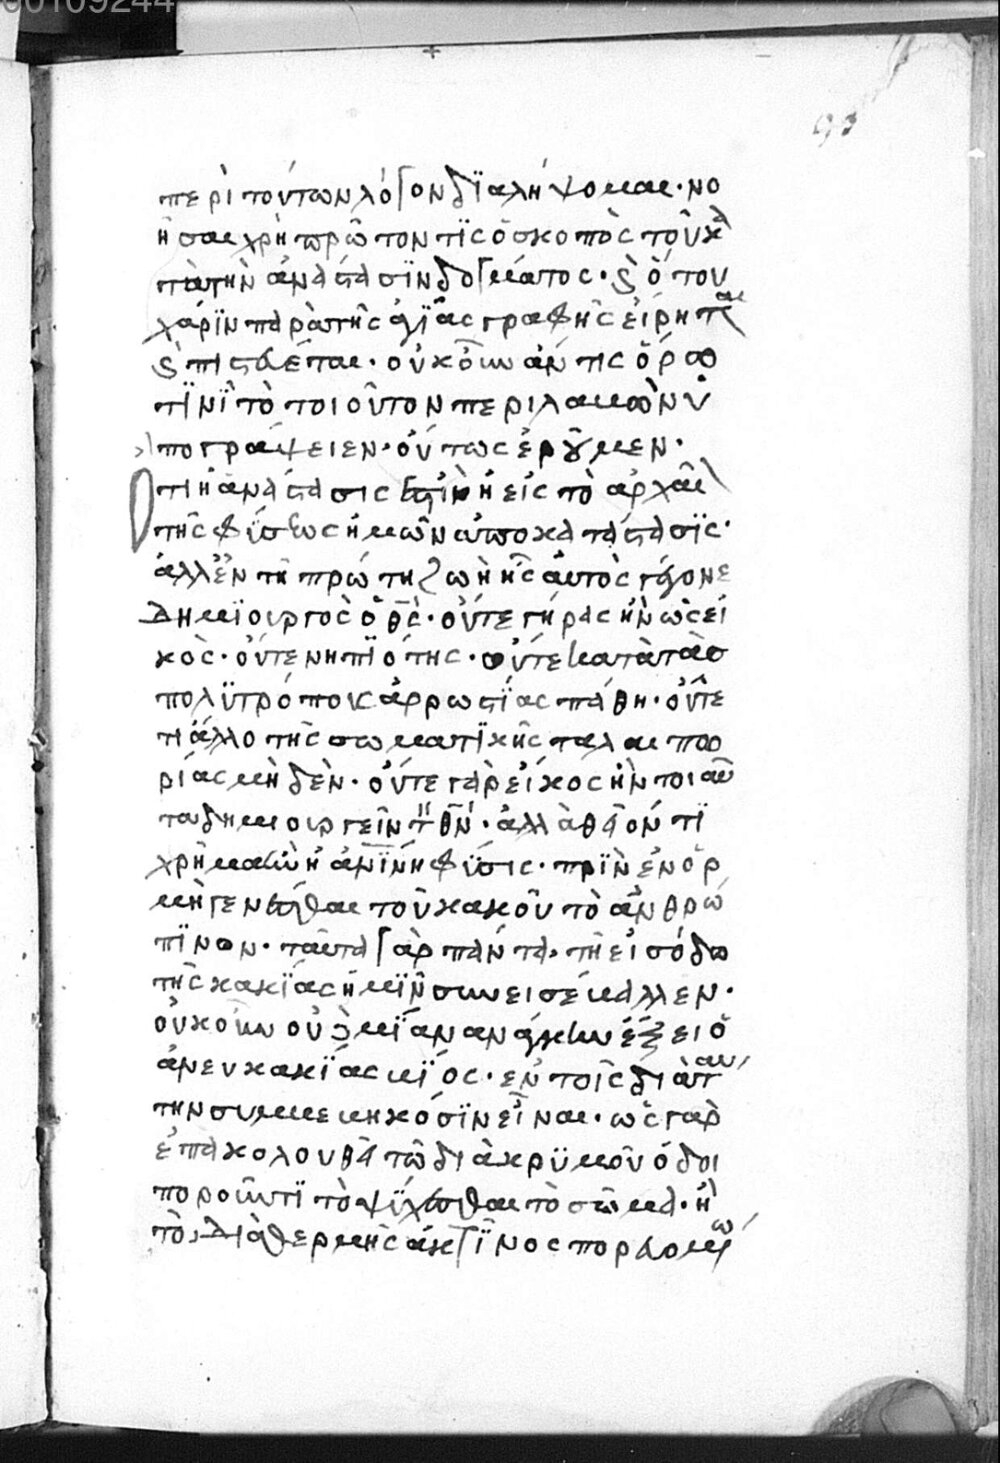 00109244
93
περὶ τούτων λόγον διαλήψομαι· νο
ῆσαι χρὴ πρῶτον τίς ὁ σκοπὸς τοῦ κα
τὰ τὴν ἀνάστασϊν δόγματος· καὶ ὅτου
χάρϊν παρὰ τῆς ἁγίας γραφῆς εἴρηται
καὶ πιστεύεται· οὐκοῦν ἄν τις ὅρω
τϊνῒ τὸ τοιοῦτον περιλαμβὼν ὑ
πογράψειεν· οὕτως ἐροῦμεν·
Ὅτι ἡ ἀνάστασις ἐστὶν ἡ εἰς τὸ ἀρχαῖ
τῆς φύσεως ἡμῶν ἀποκατάστασϊς·
ἀλλ' ἐν τῆ πρώτη ζωῆ ἧς αὐτὸς γέγονε
δημϊουργὸς ὁ θς· οὔτε γῆρας ἦν ὡς εἰ
κὸς· οὔτε νηπϊότης· οὔτε κατὰ τὰσ
πολϋτρόπους ἀρρωστΐας πάθη· οὔτε
τι ἄλλο τῆς σωματϊκῆς ταλαιπω
ρίας μηδὲν· οὔτε γὰρ εἰκὸς ἦν τοιαῦ
τα δημιουργεῖν τὸν θν· ἀλλὰ θεῖόν τϊ
χρῆμα ἦν ἡ ἀνϊνη φύσις· πρϊν ἐν ὁρ
μῆ γενέσθαι τοῦ κακοῦ τὸ ἀνθρώ
πϊνον· ταῦτα γὰρ πάντα· τῆ εἰσόδω
τῆς κακΐας ἡμῖν συνεισέβαλλεν·
οὐκοῦν οὐδεμΐαν ανάγκην ἕξει ὁ
ἄνευ κακΐας βΐος· ἐν τοῖς διὰ ταύ
την συμβεβηκόσϊν εἶναι· ὡς γὰρ
ἐπακολουθεῖ τῶ διὰ κρϋμοῦ ὁδοι
ποροῦντϊ τὸ ψύχεσθαι τὸ σῶμα· ἢ
τῶ διὰ θερμῆς ἀκτῖνος πορευομένω